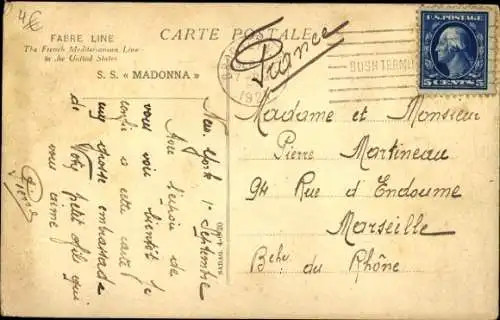 4€
FABRE LINE
The French Mediterranean Line
to the United States
S. S. « MADONNA »
CARTE POSTALE
France
BUSH TERMI
192
U.S. POSTAGE
5 CENTS 5
New York 1e Septembre
Avec l'espoir de
vous voir bientôt je
confie à cette carte
ma grosse embrassade
de Votre petit fils qui
vous aime
Pierre
Madame et Monsieur
Pierre Martineau
94 Rue d'Endoume
Marseille
Bches du Rhône